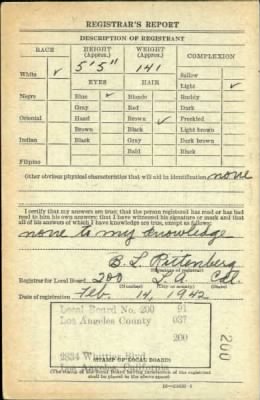 REGISTRAR'S REPORT
DESCRIPTION OF REGISTRANT
RACE HEIGHT (Approx.) WEIGHT (Approx.) COMPLEXION
5'5" 141 Sallow
White ✓ EYES HAIR Light ✓
Negro Blue ✓ Blonde Ruddy
Gray Red Dark
Oriental Hazel Brown ✓ Freckled
Brown Black Light brown
Indian Black Gray Dark brown
Bald Black
Filipino
Other obvious physical characteristics that will aid in identification none
I certify that my answers are true; that the person registered has read or has had
read to him his own answers; that I have witnessed his signature or mark and that
all of his answers of which I have knowledge are true, except as follows:
none to my knowledge
B. L. Rattenberg
(Signature of registrar)
Registrar for Local Board 200 L.A. Cal.
(Number) (City or county) (State)
Date of registration Feb. 14, 1942
Local Board No. 200 91
Los Angeles County 037
200
2834 Whittier Blvd
Los Angeles, California
200
(STAMP OF LOCAL BOARD)
(The stamp of the Local Board having jurisdiction of the registrant
shall be placed in the above space.)